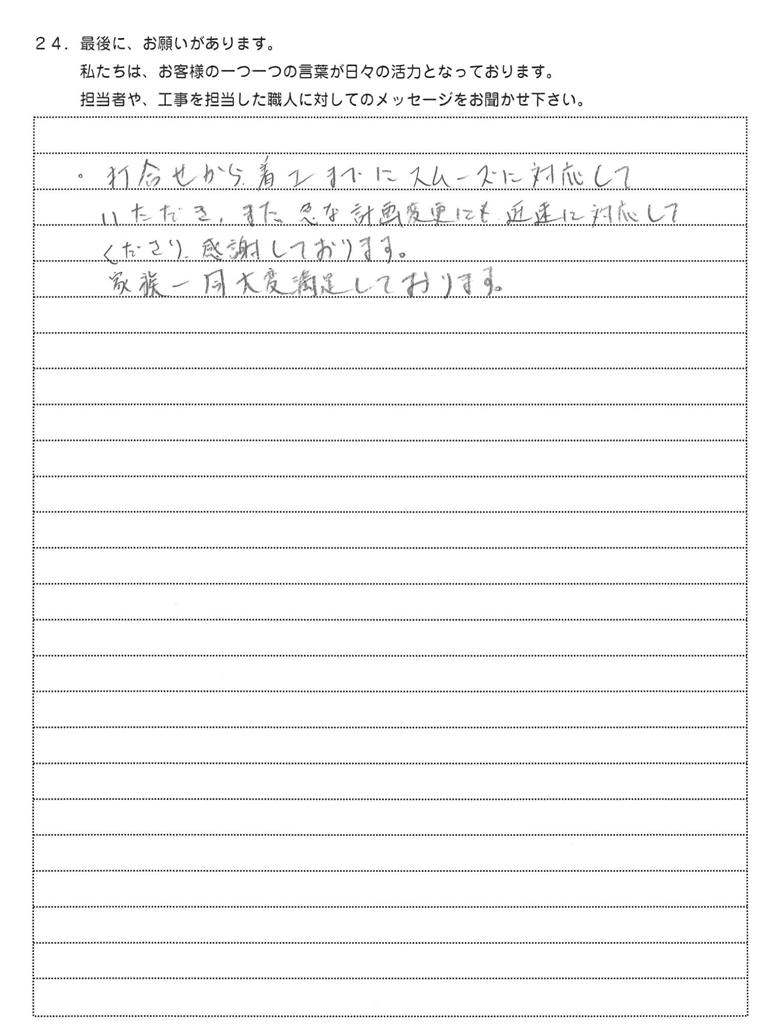 24．最後に、お願いがあります。
私たちは、お客様の一つ一つの言葉が日々の活力となっております。
担当者や、工事を担当した職人に対してのメッセージをお聞かせ下さい。
・打合せから、着工までにスムーズに対応して
いただき、また、急な計画変更にも、迅速に対応して
くださり、感謝しております。
家族一同大変満足しております。